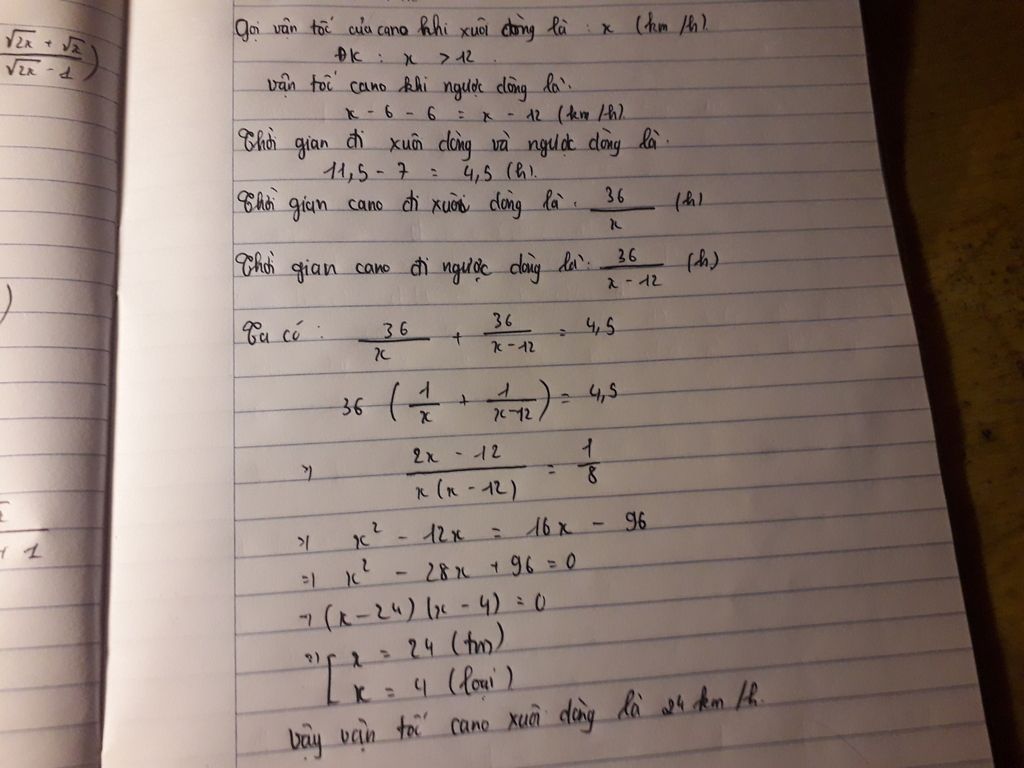 √2x + √x
√2x - 1 )
)
+ 1
Gọi vận tốc của cano khi xuôi dòng là : x (km/h).
ĐK : x > 12 .
vận tốc cano khi ngược dòng là:
x - 6 - 6 = x - 12 (km/h).
Thời gian đi xuôi dòng và ngược dòng là.
11,5 - 7 = 4,5 (h).
Thời gian cano đi xuôi dòng là : 36/x (h)
Thời gian cano đi ngược dòng là: 36/(x - 12) (h)
Ta có : 36/x + 36/(x - 12) = 4,5
36 ( 1/x + 1/(x-12) ) = 4,5
=> (2x - 12)/(x(x - 12)) = 1/8
=> x² - 12x = 16x - 96
=> x² - 28x + 96 = 0
=> (x - 24) (x - 4) = 0
=> [ x = 24 (tm)
x = 4 (loại)
vậy vận tốc cano xuôi dòng là 24 km/h.